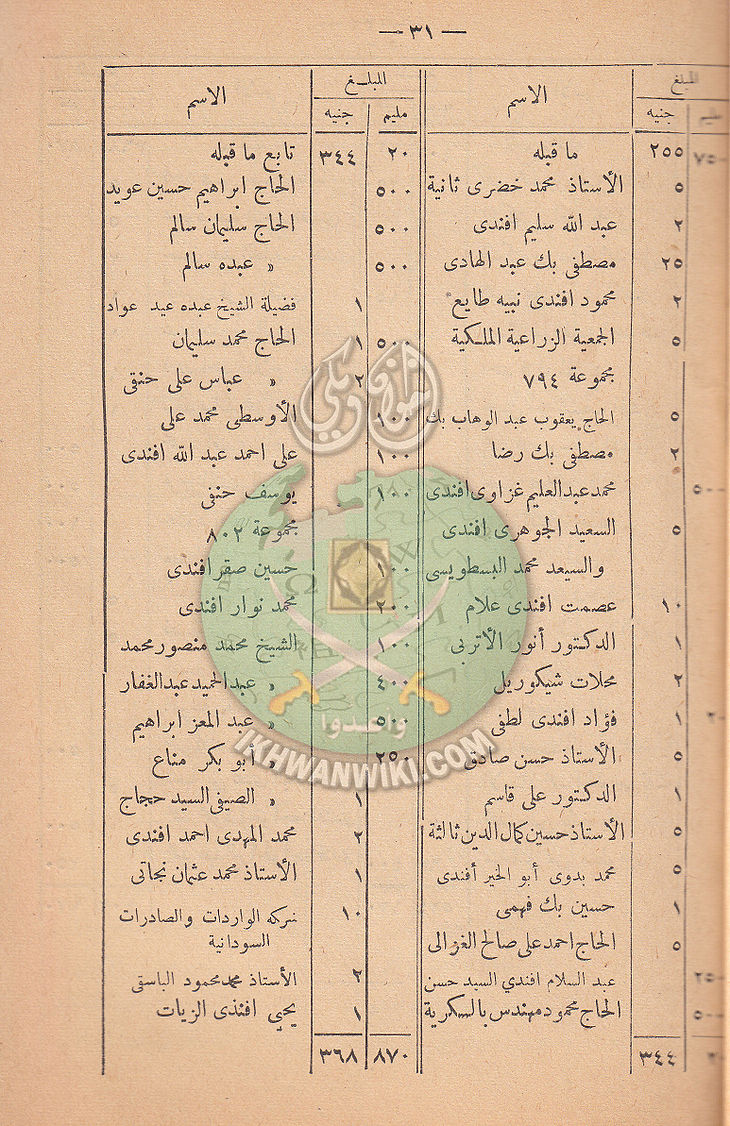 — ٣١ —
المبلغ
الاسم
مليم جنيه
٧٥٠ ٢٥٥ ما قبله
٥ الأستاذ محمد خضرى ثانية
٢ عبد الله سليم افندى
٢٥ مصطفى بك عبد الهادى
٢ محمود افندى نبيه طايع
٥ الجمعية الزراعية الملكية
مجموعة ٧٩٤
٥ الحاج يعقوب عبد الوهاب بك
٢ مصطفى بك رضا
٥٠٠ محمد عبد العليم غزاوى افندى
٥ السعيد الجوهرى افندى
والسيعد محمد البسطويسى
١٠ عصمت افندى علام
١ الدكتور أنور الأتربى
٢ محلات شيكوريل
٢٠ ١ فؤاد افندى لطفى
٥ الأستاذ حسن صادق
١ الدكتور على قاسم
٥ الأستاذ حسين كمال الدين ثالثة
٥ محمد بدوى أبو الخير أفندى
١ حسين بك فهمى
٥ الحاج احمد على صالح الغزالى
٢٥٠ عبد السلام افندي السيد حسن
٥٠٠ الحاج محمود مهندس بالسكرية
٢٠ ٣٤٤
المبلغ
الاسم
مليم جنيه
٢٠ ٣٤٤ تابع ما قبله
٥٠٠ الحاج ابراهيم حسين عويد
٥٠٠ الحاج سليمان سالم
٥٠٠ » عبده سالم
١ فضيلة الشيخ عبده عيد عواد
٥٠٠ ١ الحاج محمد سليمان
٢ » عباس على حنفى
١٠٠ الأوسطى محمد على
١٠٠ على احمد عبد الله افندى
١٠٠ يوسف حنفى
مجموعة ٨٠٢
١٠٠ حسين صقر افندى
٢٠٠ محمد نوار افندى
١٠٠ الشيخ محمد منصور محمد
٤٠٠ » عبد الحميد عبد الغفار
٥٠٠ » عبد المعز ابراهيم
٢٥٠ » ابو بكر مناع
١ » الصيفى السيد حجاج
٢ محمد المهدى احمد افندى
١ الأستاذ محمد عثمان نجاتى
١٠ شركه الواردات والصادرات
السودانية
٢ الأستاذ محمد محمود الباسقى
١ يحيى افنذى الزيات
٨٧٠ ٣٦٨
وأعدوا
IKHWANWIKI.COM